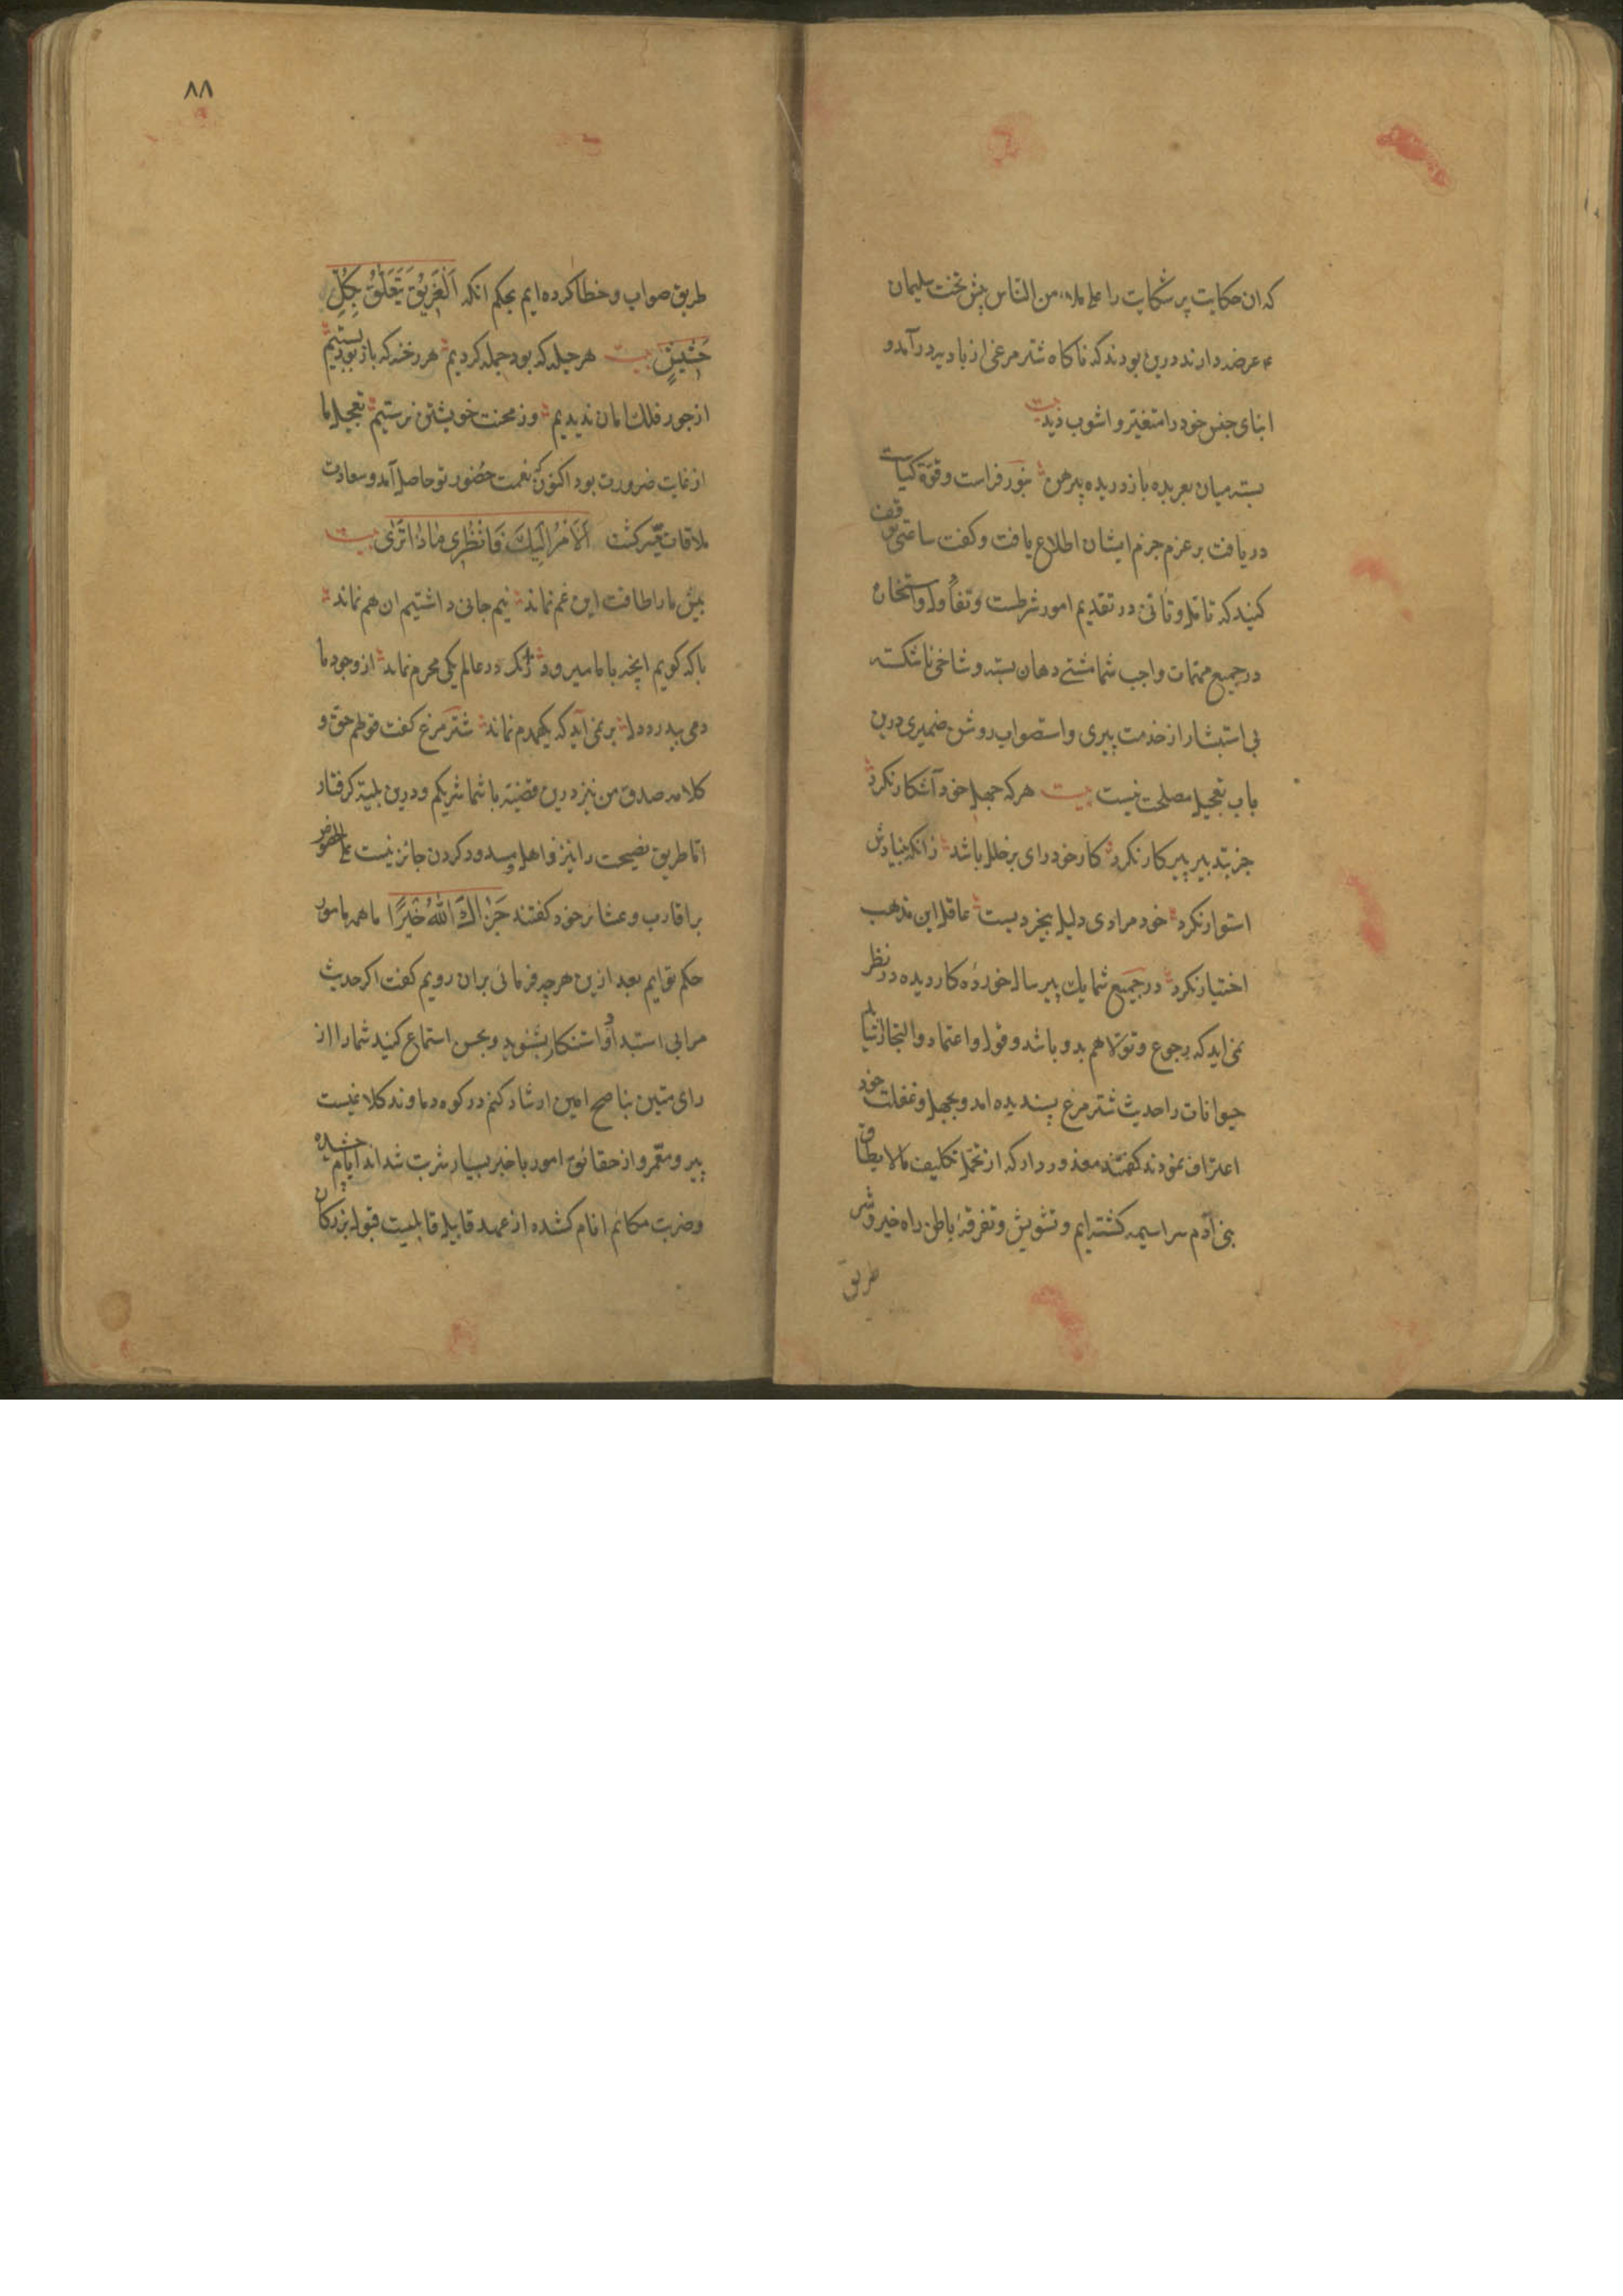 که ان حکایت پر شکایت را علی ملاء من الناس پیش تخت سلیمان
عرضه دارند درین بودند که ناکاه شتر مرغی از بادیه درآمد و
ابنای جنس خود را متغیّر و اشوب دید بیت
بسته میان بعربده باز دریده پیرهن بنور فراست و قوّة کیاست
دریافت بر عزم جزم ایشان اطلاع یافت و کفت ساعتی توقف
کنید که تامّل و تأنّی در تقدیم امور شرطست و تفأول و استخاره
در جمیع مهمّات واجب شما مشتی دهان بسته و شاخی ناشکسته
بی استبشار از خدمت پیری و استصواب روشن ضمیری درین
باب تعجیل مصلحت نیست بیت هرکه جهل خود آشکار نکرد
جز بتدبیر پیر کار نکرد کار خود رای بر خلل باشد زانکه بنیادش
استوار نکرد خود مرادی دلیل بیخردیست عاقل این مذهب
اختیار نکرد در جمیع شما یک پیر سال خورده کار دیده در نظر
نمی اید که رجوع و تولّا هم بدو باشد و قول و اعتماد و التجا را نیاید
حیوانات را حدیث شتر مرغ پسندیده امد و بجهل و غفلت خود
اعتراف نمودند کفتند معذور دار که از تحمّل تکلیف مالا یطاق
بنی آدم سراسیمه کشته ایم و تشویش و تفرقهٔ باطن راه خیر و شر
طریق
۸۸
طریق صواب و خطا کرده ایم بحکم انکه اَلْغَرِیْقُ یَتَعَلَّقُ بِکُلِّ
حَشِیْشٍ بیت هر حیله که بود جمله کردیم هر رخنه که باز بود بستیم
از جور فلک امان ندیدیم وز محنت خویشتن نرستیم تعجیل ما
از غایت ضرورت بود اکنون که نعمت حضور تو حاصل آمد و سعادت
ملاقات میّسر کشت اَلاَمْرُ اِلَیْکَ فَانْظُرِی مَاذَا تَرَی بیت
بیش ما را طاقت این غم نماند نیم جانی داشتیم ان هم نماند
با که کویم انچه با ما میرود زانک در عالم یکی محرم نماند از وجود ما
دمی بد رو دل بر نمی آید که یکهمدم نماند شتر مرغ کفت قولهم حق و
کلامه صدق من نیز درین قضیّه با شما شریکم و درین بلیّه کرفتار
امّا طریق نصیحت را نیز فا هل مسدود کردن جائز نیست علی الخصوص
بر اقارب و عشائر خود کفتند جَزَاکَ اللّٰهُ خَیْرًا ما همه مامور
حکم توایم بعد ازین هرچه فرمائی بران رویم کفت اکر حدیث
مرا بی استبداد و استنکار بشنوید و بحسن استماع کنید شما را از
رای متین بناصح امین ارشاد کنم در کوه دماوند کلاغیست
پیر و معمّر و از حقائق امور با خبر بسیار شربت شدائد ایام چشیده
و ضربت مکائم انام کشیده از عهد قابیل قابلیت قبول بزرکان